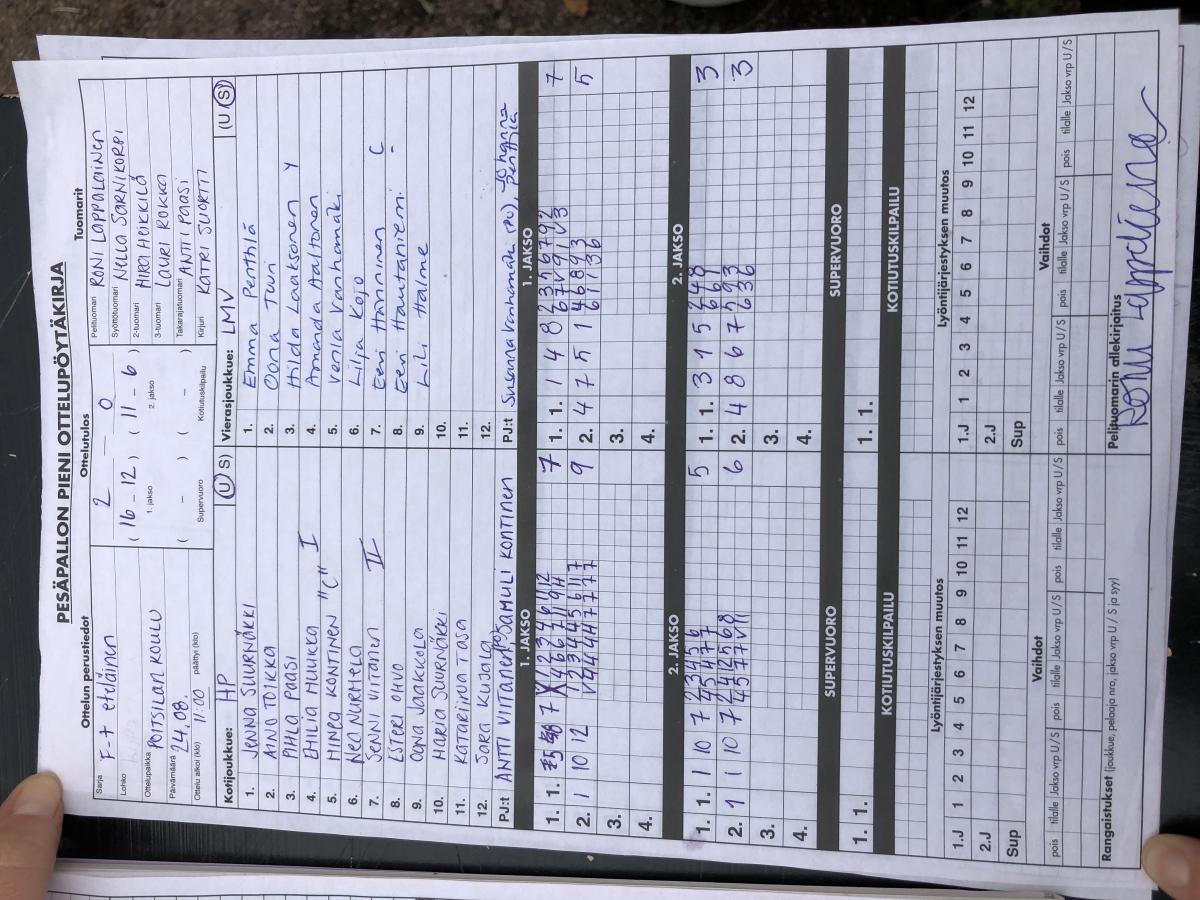 PESÄPALLON PIENI OTTELUPÖYTÄKIRJA
Ottelun perustiedot
Sarja F-t eteläinen
Lohko
Ottelupaikka POTSILAN KOULU
Päivämäärä 24.08.
Ottelu alkoi (klo) 11:00 päättyi (klo)
Ottelutulos
2 – 0
( 16 – 12 ) ( 11 – 6 )
1. jakso 2. jakso
( – ) ( – )
Supervuoro Kotiutuskilpailu
Tuomarit
Pelituomari RONI LAPPALAINEN
Syöttötuomari NELLA SARNIKORPI
2-tuomari HEIKKILÄ
3-tuomari LAURI KOKKO
Takarajatuomari ANTTI PAASI
Kirjuri KATRI SUORTTI
Kotijoukkue: HP (U S)
1. JENNA SUURNÄKKI
2. AINO TOIKKA
3. PIHLA PAASI
4. EMILIA MUUKKA I
5. HINRA KONTINEN "C"
6. Nea NURMELA
7. SENNI VIITANEN II
8. ESTERI OHVO
9. OONA JAAKKOLA
10. MARIA SUURNÄKKI
11. KATARIINA TASA
12. SARA KUJALA
PJ:t ANTTI VIITANEN, SAMULI KONTINEN
Vierasjoukkue: LMV (U S)
1. Emma Penttilä
2. Oona Tuuri
3. Hilda Laaksonen Y
4. Amanda Aaltonen
5. Venla Vanhamäki
6. Lilja Kojo
7. Eevi Hänninen C
8. Eevi Hautaniemi -
9. Lili Halme
10.
11.
12.
PJ:t Susanna Vanhamäki (PU), Johanna Penttilä
1. JAKSO 1. JAKSO
1. 1. 7 1. 1. 1 4 8 2 3 5 6 7 9 2 7
2. 1 10 12 9 2. 4 7 5 1 4 6 8 9 3 5
3. 3.
4. 4.
2. JAKSO 2. JAKSO
1. 1. 1 10 7 2 3 4 5 6 5 1. 1. 3 1 5 2 4 8 3
4 5 4 7 7 6 6 1
2. 1 1 10 7 2 4 2 5 6 8 6 2. 4 8 6 7 5 9 3 3
4 5 7 7 V 11 6 3 6
3. 3.
4. 4.
SUPERVUORO SUPERVUORO
1. 1. 1. 1.
KOTIUTUSKILPAILU KOTIUTUSKILPAILU
Lyöntijärjestyksen muutos Lyöntijärjestyksen muutos
1.J 1 2 3 4 5 6 7 8 9 10 11 12 1.J 1 2 3 4 5 6 7 8 9 10 11 12
2.J 2.J
Sup Sup
Vaihdot Vaihdot
pois tilalle Jakso vrp U/S pois tilalle Jakso vrp U/S pois tilalle Jakso vrp U/S pois tilalle Jakso vrp U/S pois tilalle Jakso vrp U/S pois tilalle Jakso vrp U/S
Rangaistukset (joukkue, pelaaja nro, jakso vrp U / S ja syy)
Pelituomarin allekirjoitus
Roni Lappalainen